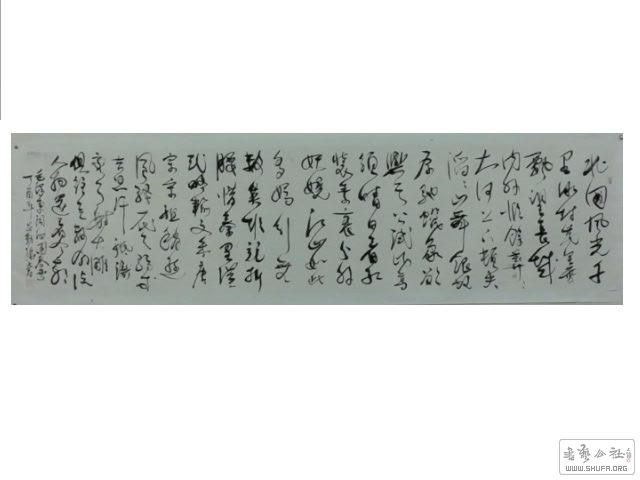 北国风光千
里冰封万里雪
飘望长城
内外惟馀莽
大河上下顿失
滔滔山舞银蛇
原驰蜡象欲
与天公试比高
须晴日看红
装素裹分外
妖娆江山如此
多娇引无
数英雄竞折
腰惜秦皇汉
武略输文采唐
宗宋祖稍逊
风骚一代天骄成
吉思汗祗识
弯弓射大雕
俱往矣数风流
人物还看今朝
毛泽东词沁园春雪
丁酉年
书艺公社
WWW.SHUFA.ORG